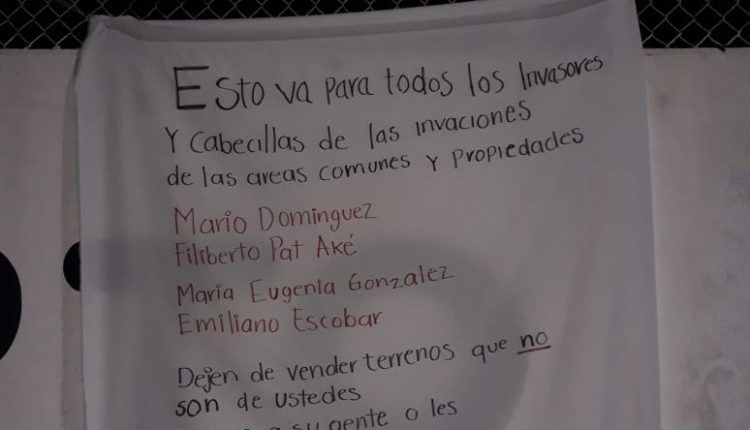 Esto va para todos los Invasores
Y Cabecillas de las invaciones
de las areas comunes y Propiedades
Mario Dominguez
Filiberto Pat Aké
Maria Eugenia Gonzalez
Emiliano Escobar
Dejen de vender terrenos que no
son de ustedes
su gente o les